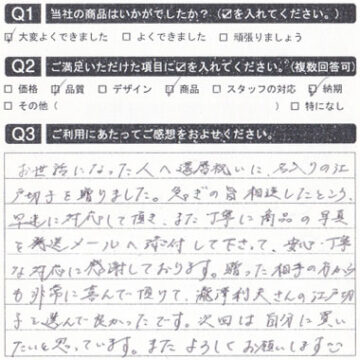 Q1 当社の商品はいかがでしたか？（☑を入れてください。）
☑ 大変よくできました □ よくできました □ 頑張りましょう
Q2 ご満足いただけた項目に☑を入れてください。（複数回答可）
□ 価格 ☑ 品質 □ デザイン ☑ 商品 □ スタッフの対応 ☑ 納期
□ その他（ ） □ 特になし
Q3 ご利用にあたってご感想をおよせください。
お世話になった人へ還暦祝いに、名入りの江
戸切子を贈りました。急ぎの旨相談したところ、
早速に対応して頂き、また丁寧に商品の写真
を発送メールへ添付して下さって、安心・丁寧
な対応に感謝しております。贈った相手の方から
も非常に喜んで頂けて、瀧澤利夫さんの江戸切
子を選んで良かったです。次回は自分に買い
たいと思っています。またよろしくお願いします